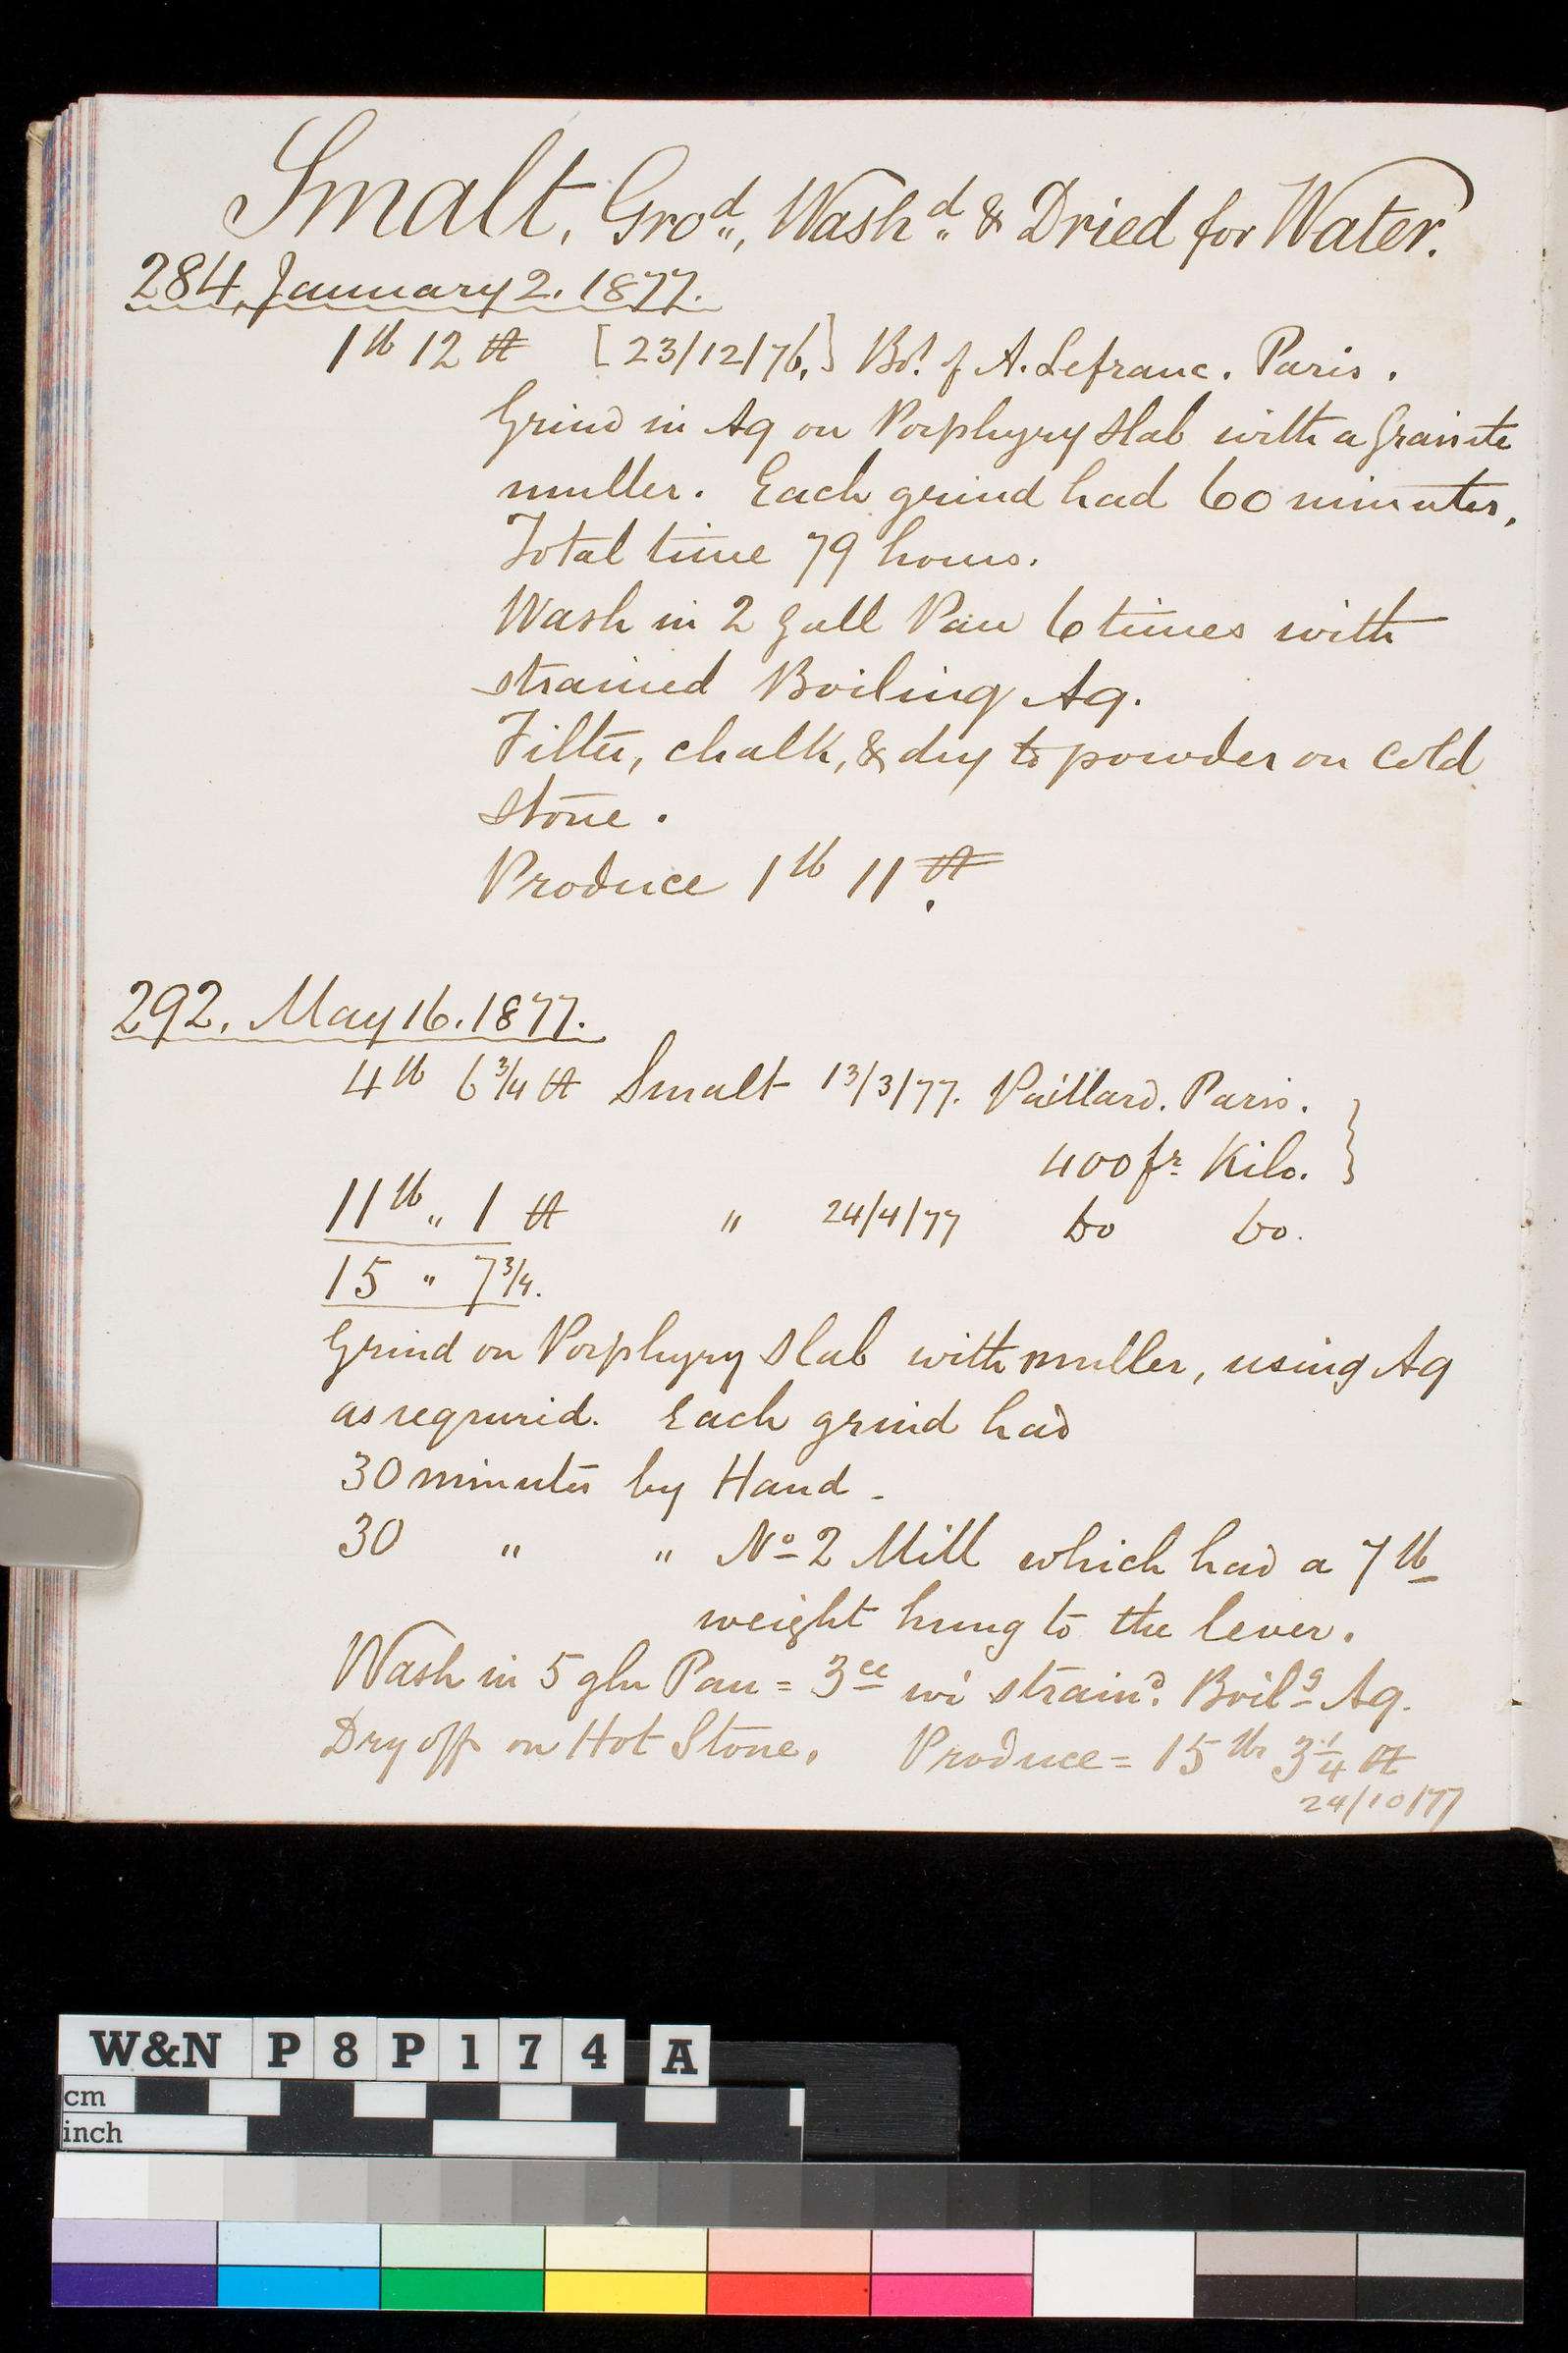 Smalt, Gro^d,,, Wash^d,, & Dried for Water.
284, January 2. 1877.
1 lb 12 ℔ [23/12/76,] Bo^t of A. Lefranc. Paris.
Grind in Aq on Porphyry Slab with a Granite
muller. Each grind had 60 minutes.
Total time 79 hours.
Wash in 2 gall Pan 6 times with
strained Boiling Aq.
Filter, chalk, & dry to powder on Cold
Stone.
Produce 1 lb 11 ℔.
292. May 16. 1877.
4 lb 6 3/4 ℔ Smalt 13/3/77. Paillard. Paris.
400 fr Kilo. }
11 lb „ 1 ℔ „ 24/4/77 Do Do.
15 „ 7 3/4.
Grind on Porphyry Slab with muller, using Aq
as requrid. Each grind had
30 minutes by Hand -
30 „ „ No 2 Mill which had a 7 lb
weight hung to the lever.
Wash in 5 gln Pan = 3 ce wi strain^d. Boil^g Aq.
Dry off on Hot Stone. Produce = 15 lbs 3 1/4 ℔
24/10/77
W&N P8P174 A
cm
inch